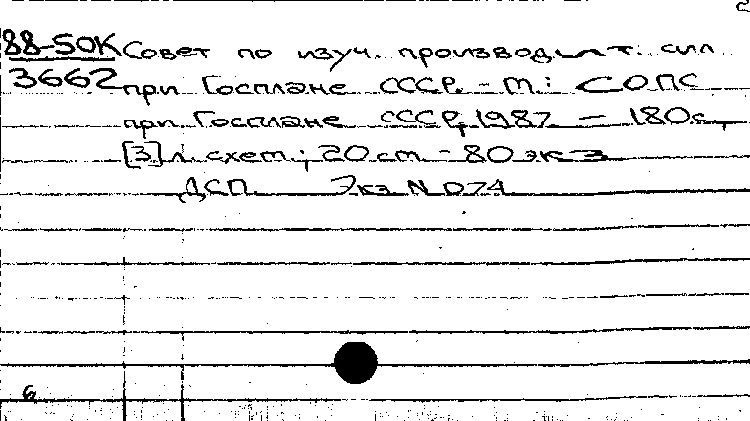 88-50К Совет по изуч. производит. сил
3662 при Госплане СССР. - М.: СОПС
при Госплане СССР, 1987 - 180с,
[3] л. схем.; 20 см - 80 экз
ДСП. Экз N 074
6